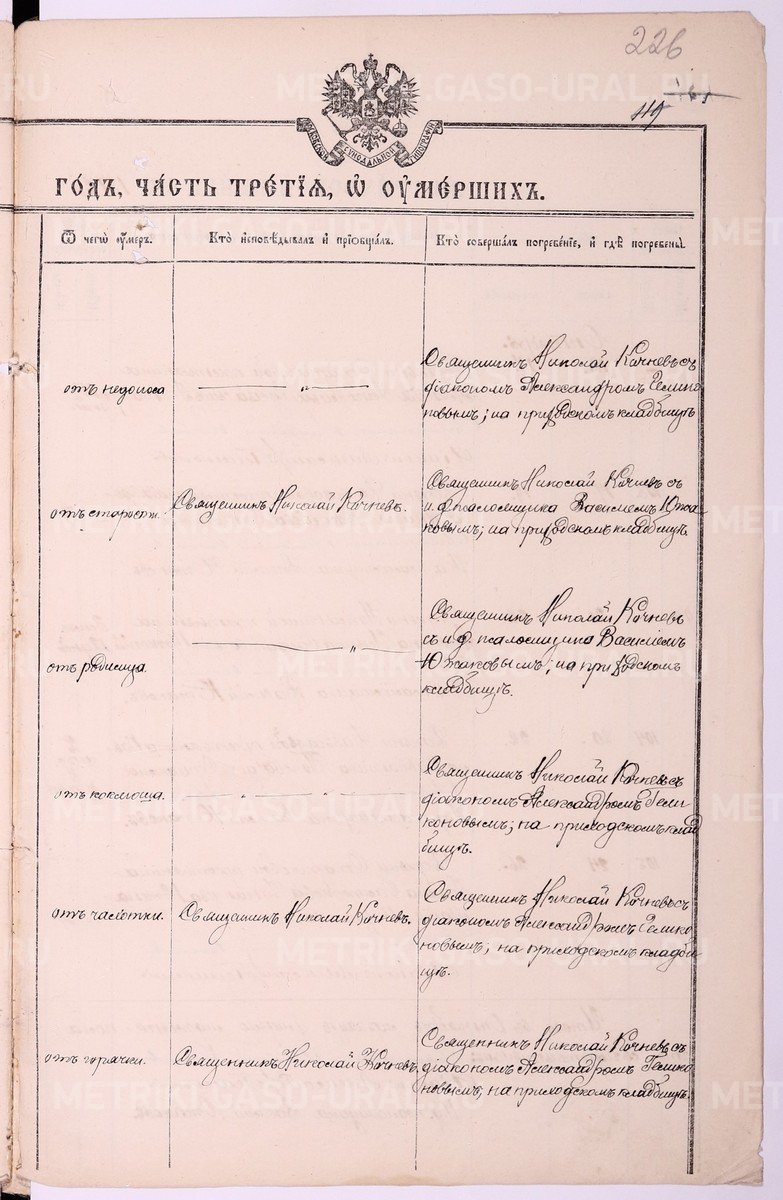 226
119
МОСКОВСКОЙ СѴНОДАЛЬНОЙ ТИПОГРАФІИ
ГО́ДЪ, ЧА́СТЬ ТРЕ́ТІѦ, Ѽ ОУ҆МЕ́РШИХЪ.
Ѿ чегѡ̀ оу҆́меръ.
Кто̀ и҆сповѣ́дывалъ и҆ прїѡбща́лъ.
Кто̀ соверша́лъ погребе́нїе, и҆ гдѣ̀ погребены̀
отъ недоноса
Священникъ Николай Кочневъ съ
діакономъ Александромъ Гелико
новымъ; на приходскомъ кладбищѣ
отъ старости.
Священникъ Николай Кочневъ.
Священникъ Николай Кочневъ съ
и. д. псаломщика Василіемъ Южа
ковымъ; на приходскомъ кладбищѣ.
отъ родимца.
Священникъ Николай Кочневъ
съ и. д. псаломщика Василіемъ
Южаковымъ; на приходскомъ
кладбищѣ.
отъ коклюша.
Священникъ Николай Кочневъ съ
діакономъ Александромъ Гели
коновымъ; на приходскомъ клад
бищѣ.
отъ чахотки.
Священникъ Николай Кочневъ.
Священникъ Николай Кочневъ съ
діакономъ Александромъ Гелико
новымъ, на приходскомъ кладби
щѣ.
отъ горячки.
Священникъ Николай Кочневъ.
Священникъ Николай Кочневъ съ
діакономъ Александромъ Гелико
новымъ; на приходскомъ кладбищѣ.
METRIKI.GASO-URAL.RU